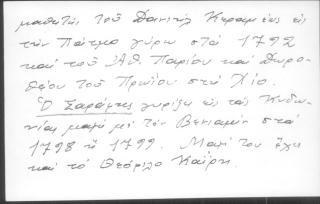 μαθητὴς τοῦ Δανιὴλ Κεραμέως εἰς
τὴν Πάτμο γύρω στὰ 1792
καὶ τοῦ Ἀθ. Παρίου καὶ Δωρο-
θέου τοῦ Πρωΐου στὴ Χίο.
Ὁ Σαράφης γυρίζει εἰς τὰς Κυδω-
νίας μαζὶ μὲ τὸν Βενιαμὶν στὰ
1798 ἢ 1799. Μαζί του ἔχει
καὶ τὸ Θεόφιλο Καΐρη.